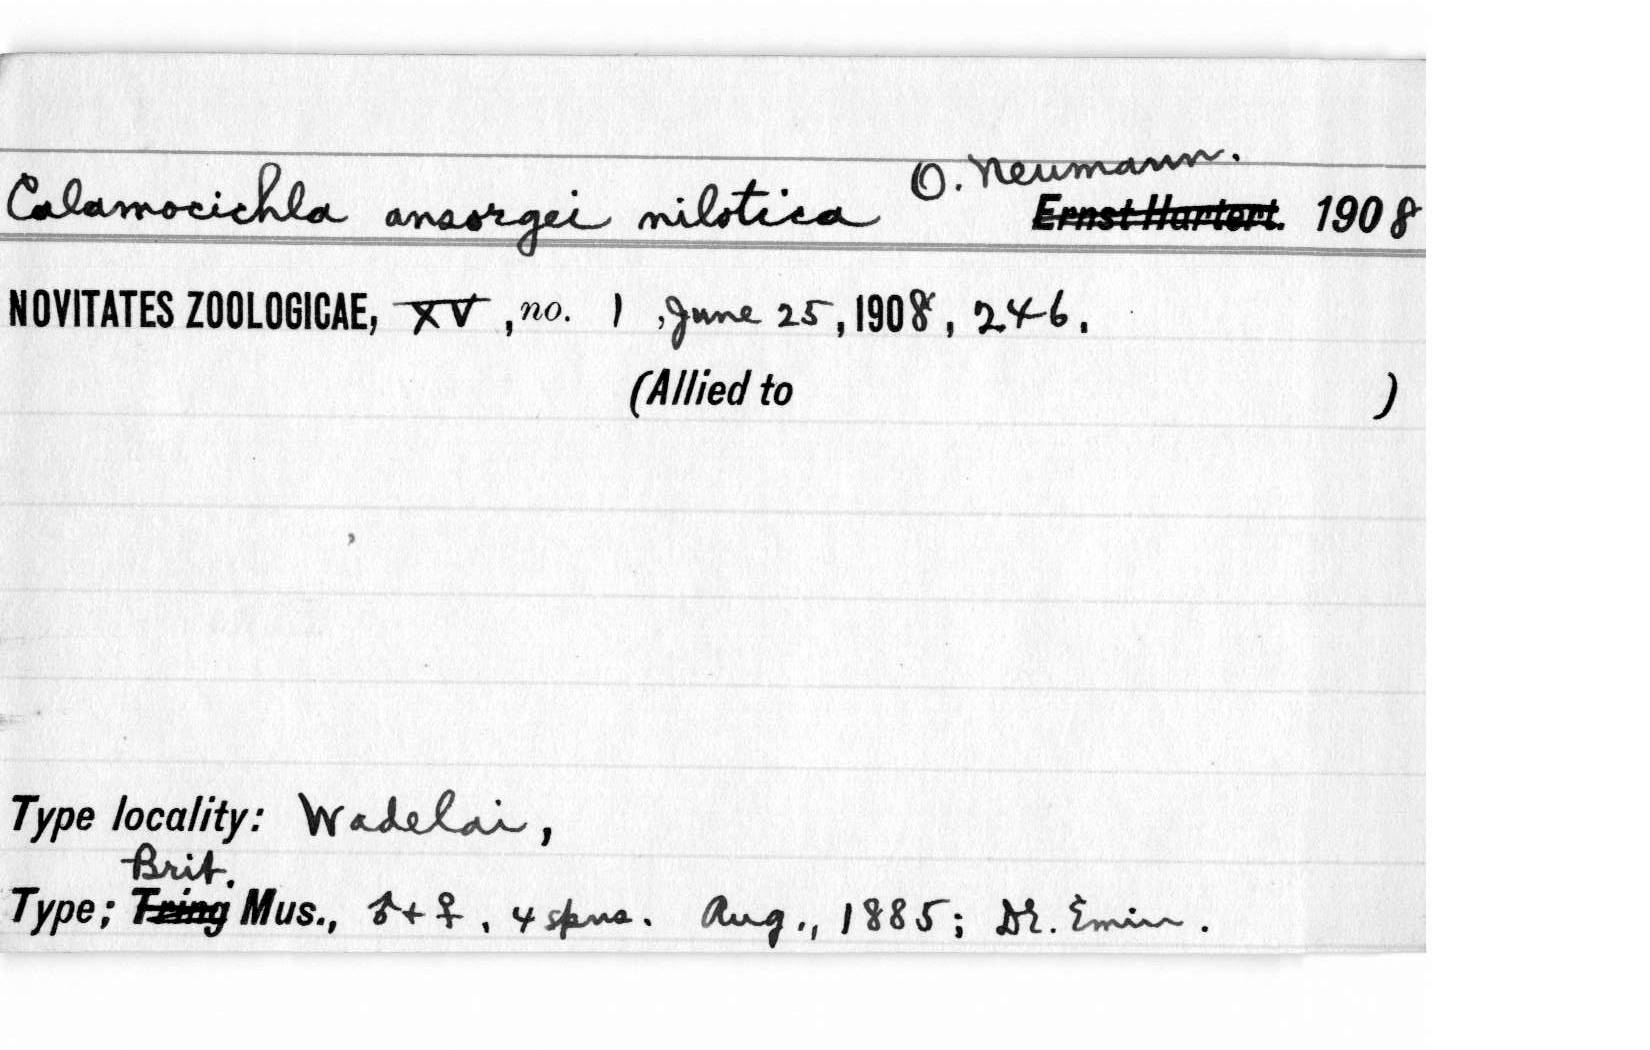 Calamocichla ansorgei nilotica O. Neumann.
Ernst Hartert. 1908
NOVITATES ZOOLOGICAE, XV, no. 1, June 25, 1908, 246.
(Allied to )
Type locality: Wadelai,
Brit.
Type; Tring Mus., ♂+♀, 4 spns. Aug., 1885; Dr. Emin.